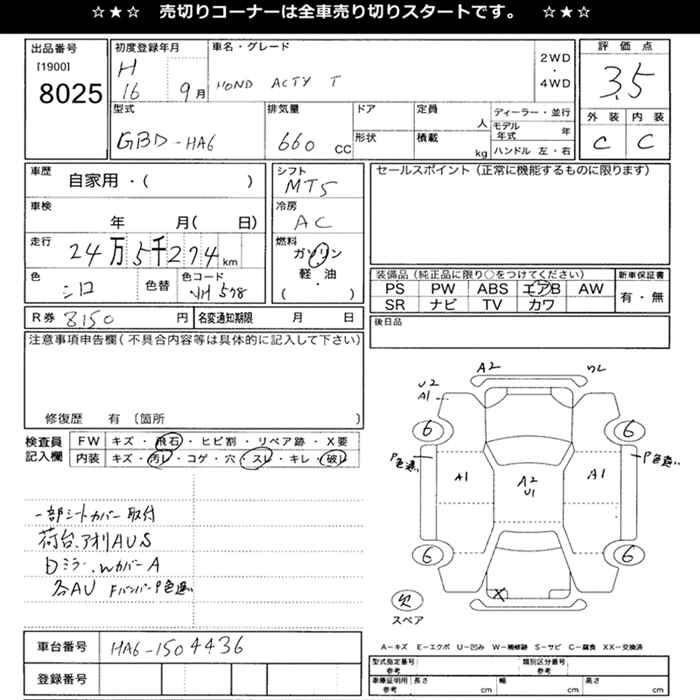 ☆★☆　売切りコーナーは全車売り切りスタートです。　☆★☆
出品番号
[1900]
8025
初度登録年月
H
16 9月
車名・グレード
HOND ACTY T
2WD
・
4WD
評価点
3.5
外装 内装
C C
型式
GBD-HA6
排気量
660 CC
ドア
形状
定員
人
積載
kg
ディーラー・並行
モデル年式 年
ハンドル 左・右
車歴
自家用・( )
車検
年 月( 日)
走行
24万5千274km
色
シロ
色替
色コード
NH578
シフト
MT5
冷房
AC
燃料
ガソリン
軽・油
・
( )
セールスポイント（正常に機能するものに限ります）
装備品（純正品に限り○をつけてください）
PS PW ABS エアB AW
SR ナビ TV カワ
新車保証書
有・無
R券 8150 円
名変通知期限 月 日
後日品
注意事項申告欄（不具合内容等は具体的に記入して下さい）
修復歴 有（箇所 ）
検査員
記入欄
FW キズ・飛石・ヒビ割・リペア跡・X要
内装 キズ・汚レ・コゲ・穴・スレ・キレ・破レ
一部シートカバー取付
荷台.アオリAUS
Dミラー.wカバーA
各AU Fバンパー P色違い
車台番号 HA6-1504436
登録番号
A2
ワレ
U2
A1
6
6
P色違い
P色違い
A1
A2
U1
A1
6
6
X
欠
スペア
A－キズ E－エクボ U－凹み W－補修跡 S－サビ C－腐食 XX－交換済
型式指定番号
参考
類別区分番号
参考
車庫証明用
参考
長さ cm
幅 cm
高さ cm